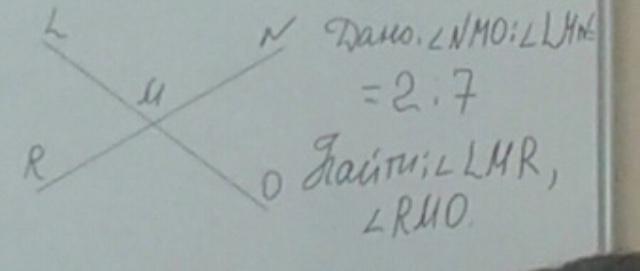 L
N
M
R
O
Дано: ∠NMO:∠LMN=
=2:7
Найти: ∠LMR,
∠RMO.